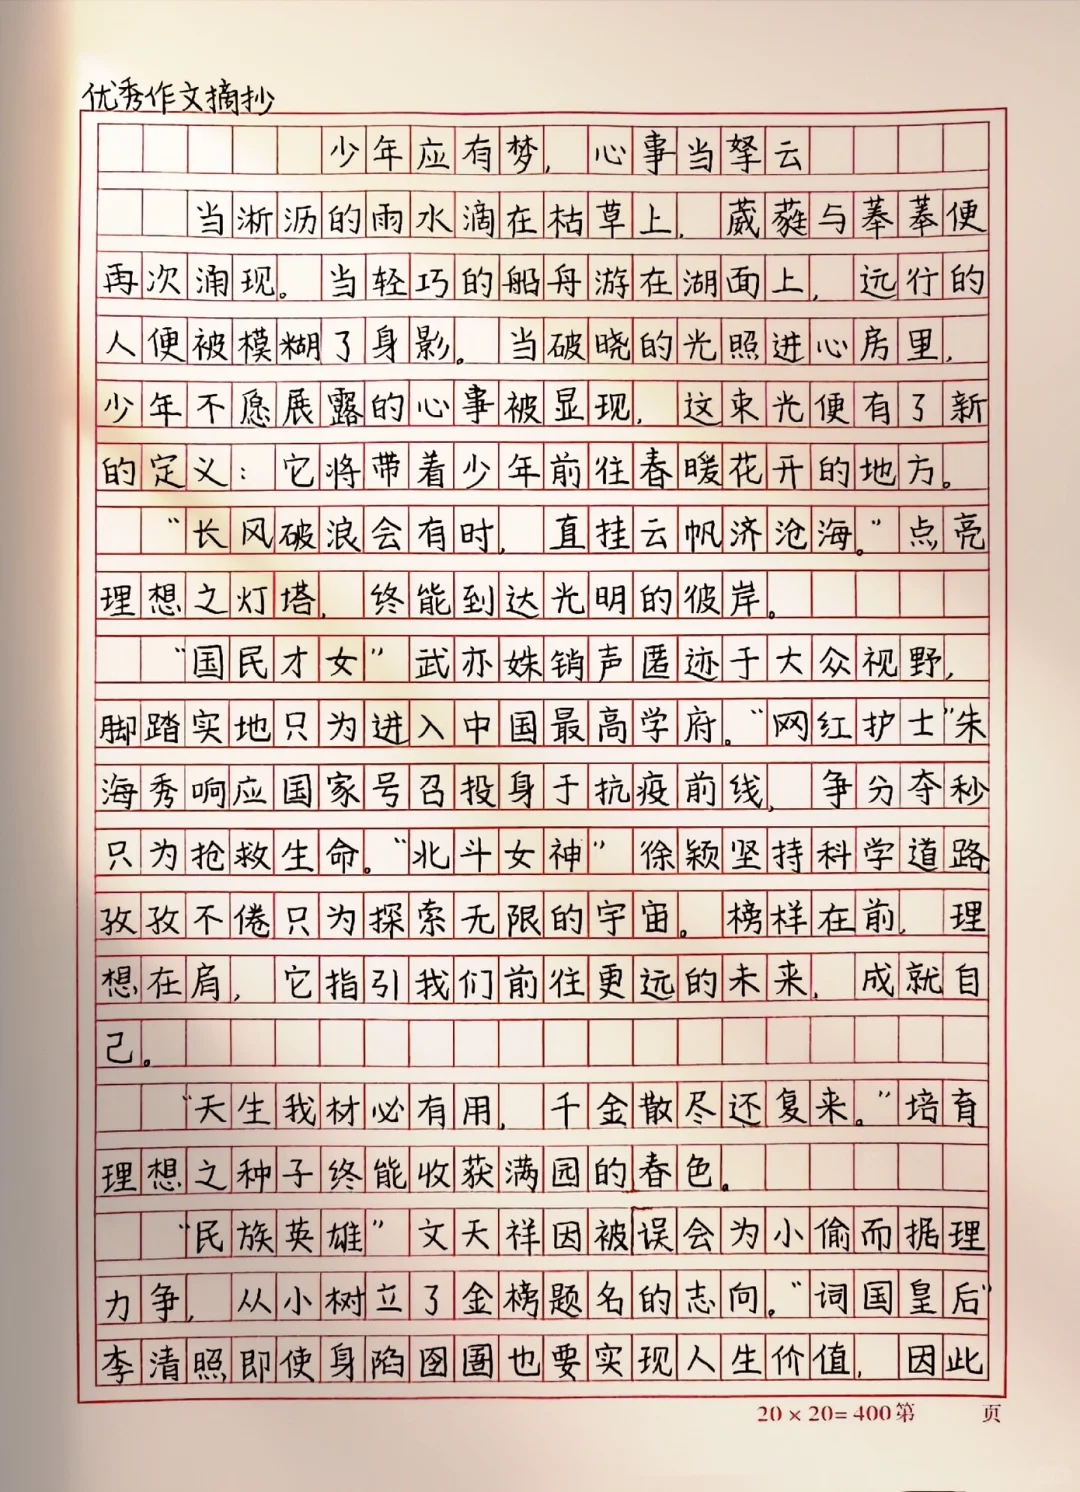 优秀作文摘抄
少年应有梦，心事当拏云
当淅沥的雨水滴在枯草上，葳蕤与菶菶便
再次涌现。当轻巧的船舟游在湖面上，远行的
人便被模糊了身影。当破晓的光照进心房里，
少年不愿展露的心事被显现，这束光便有了新
的定义：它将带着少年前往春暖花开的地方。
“长风破浪会有时，直挂云帆济沧海。”点亮
理想之灯塔，终能到达光明的彼岸。
“国民才女”武亦姝销声匿迹于大众视野，
脚踏实地只为进入中国最高学府。“网红护士”朱
海秀响应国家号召投身于抗疫前线，争分夺秒
只为抢救生命。“北斗女神”徐颖坚持科学道路
孜孜不倦只为探索无限的宇宙。榜样在前，理
想在肩，它指引我们前往更远的未来，成就自
己。
“天生我材必有用，千金散尽还复来。”培育
理想之种子终能收获满园的春色。
“民族英雄”文天祥因被误会为小偷而据理
力争，从小树立了金榜题名的志向。“词国皇后”
李清照即使身陷囹圄也要实现人生价值，因此
20×20=400 第 页